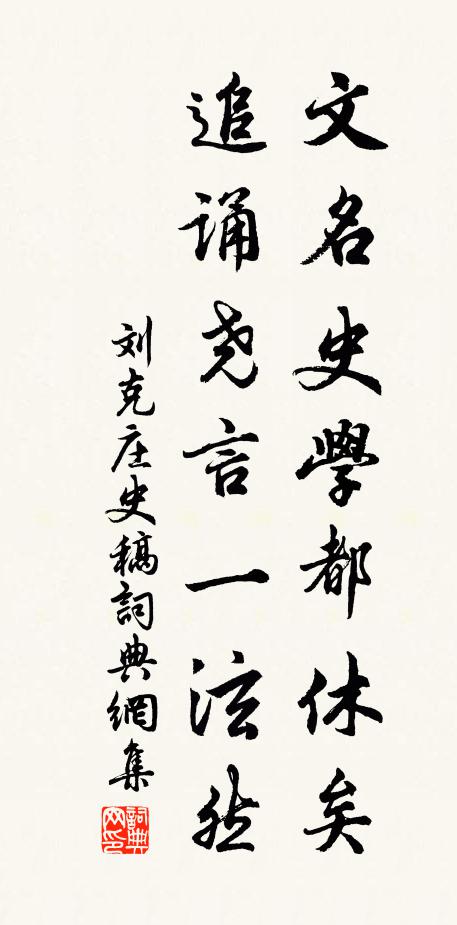 文名史學都休矣
追诵尧言一泫然
刘克庄史稿詞典網集
詞典
网印